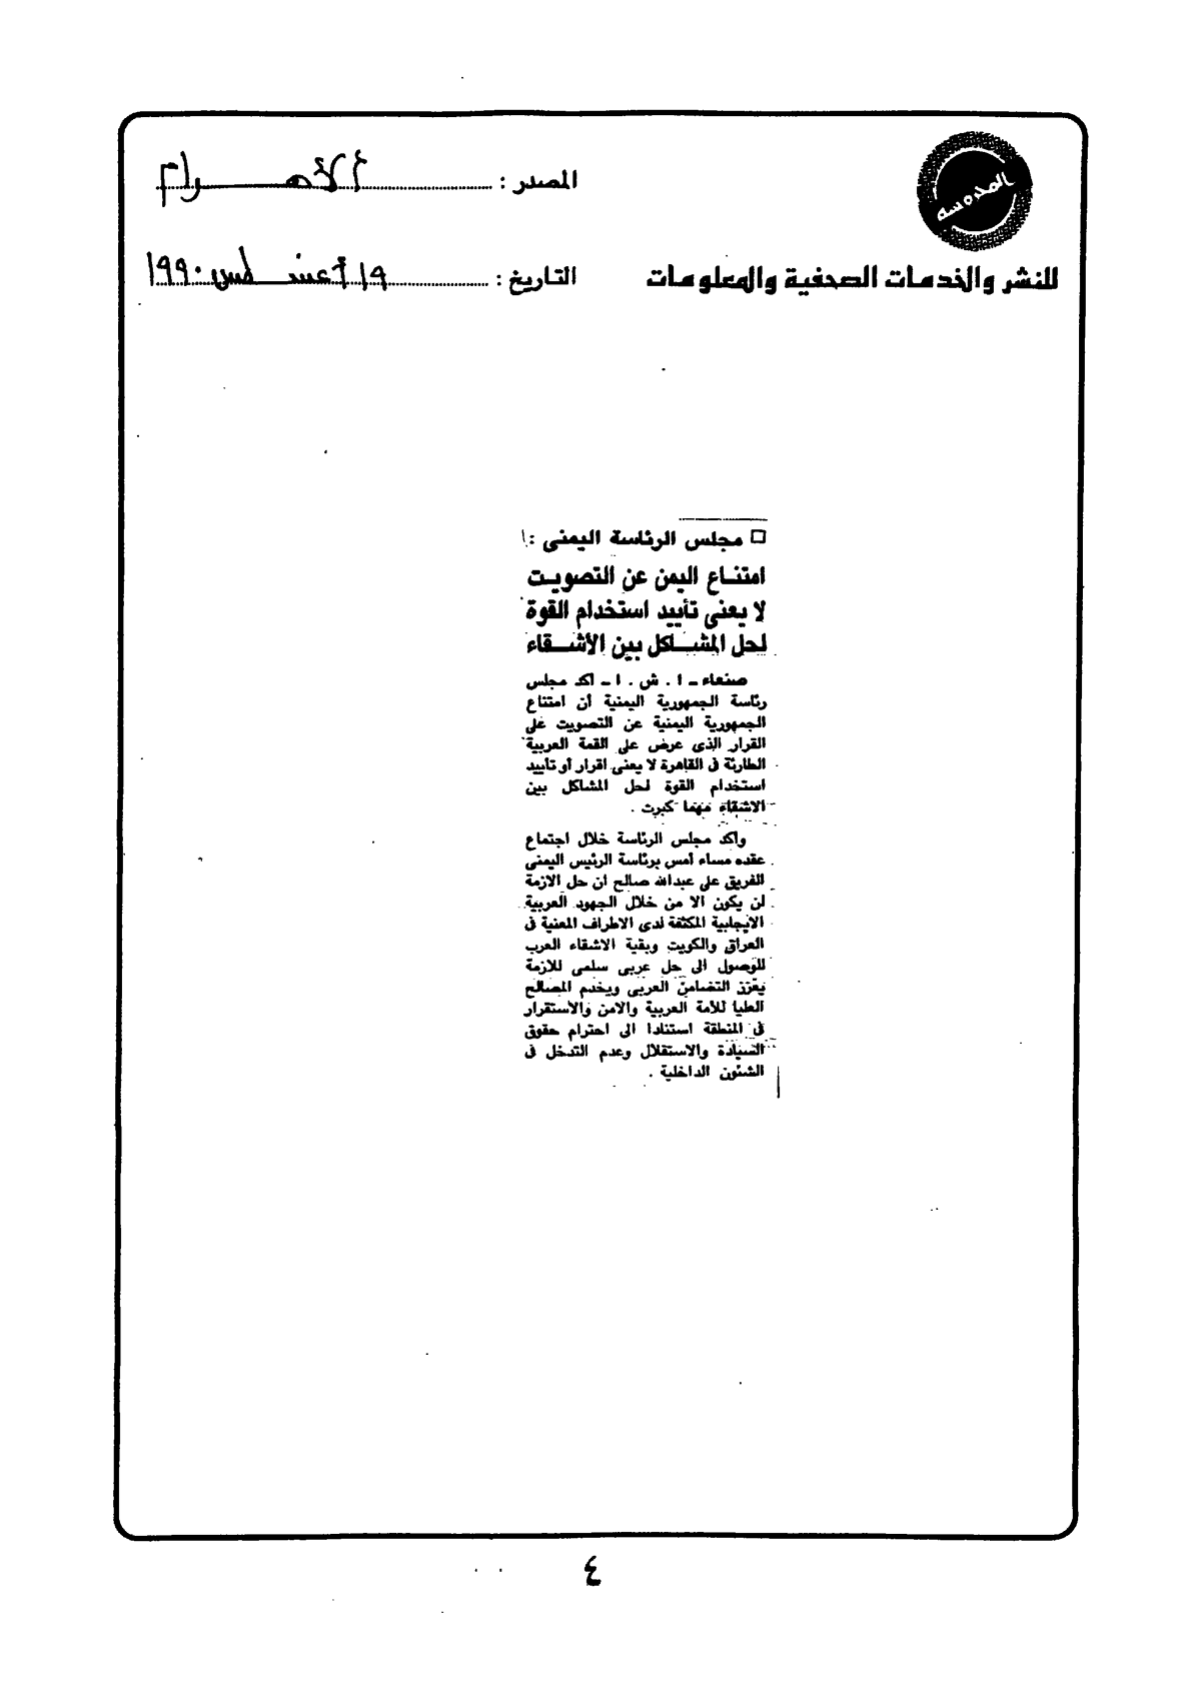 المحروسة
المصدر : الأهرام
للنشر والخدمات الصحفية والمعلومات
التاريخ : ١٩ أغسطس ١٩٩٠
□ مجلس الرئاسة اليمنى :
امتنـاع اليمن عن التصويـت
لا يعنى تأييد استخدام القوة
لحل المشـاكل بين الأشـقاء
صنعاء ـ ا . ش . ا ـ اكد مجلس
رئاسة الجمهورية اليمنية أن امتناع
الجمهورية اليمنية عن التصويت على
القرار الذى عرض على القمة العربية
الطارئة فى القاهرة لا يعنى اقرار أو تأييد
استخدام القوة لحل المشاكل بين
الاشقاء مهما كبرت .
وأكد مجلس الرئاسة خلال اجتماع
عقده مساء أمس برئاسة الرئيس اليمنى
الفريق على عبدالله صالح ان حل الازمة
لن يكون الا من خلال الجهود العربية
الايجابية المكثفة لدى الاطراف المعنية فى
العراق والكويت وبقية الاشقاء العرب
للوصول الى حل عربى سلمى للازمة
يعزز التضامن العربى ويخدم المصالح
العليا للأمة العربية والامن والاستقرار
فى المنطقة استنادا الى احترام حقوق
السيادة والاستقلال وعدم التدخل فى
الشئون الداخلية .
٤